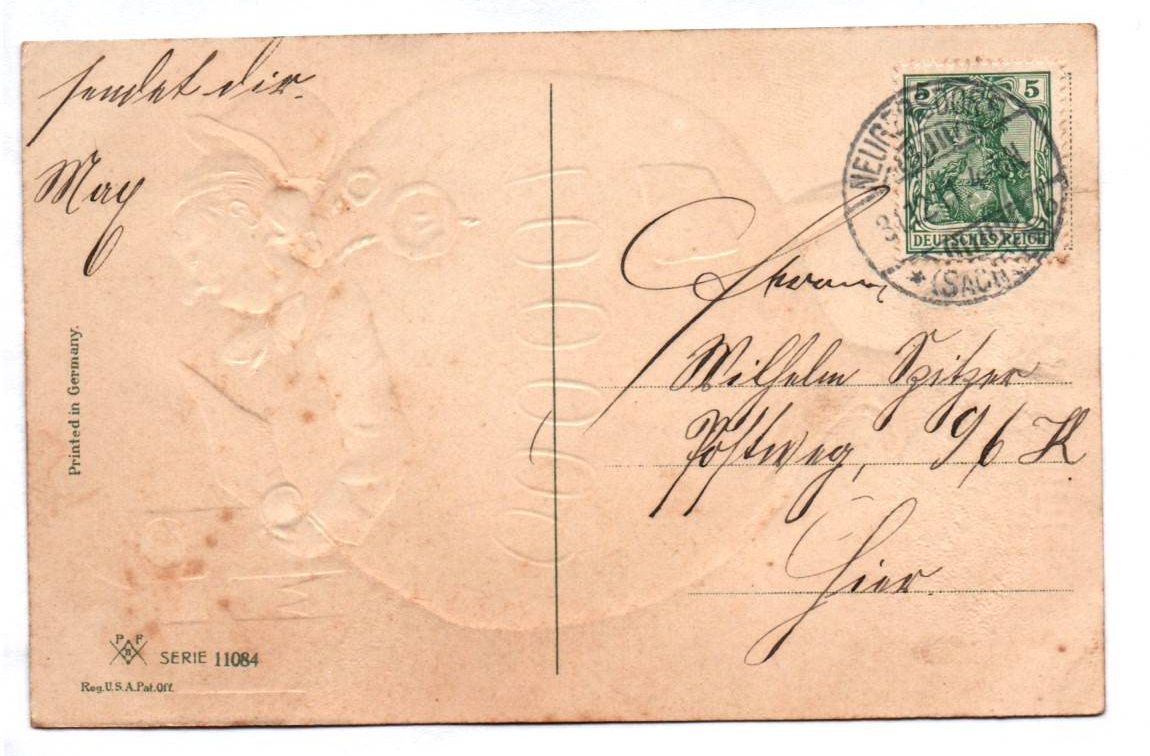 sendet dir.
Max
Printed in Germany.
P F
B
SERIE 11084
Reg. U.S.A. Pat. Off.
5 5
DEUTSCHES REICH
NEUGERSDORF
* (SACHS.)
Herrn
Wilhelm Spitzer
Postweg, 96 K
Hier.